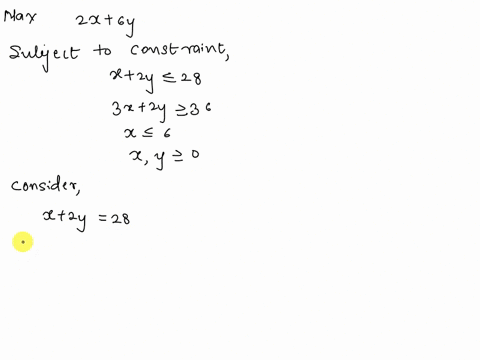 Max 2x+6y
Subject to constraint,
x+2y ≤ 28
3x+2y ≥ 36
x ≤ 6
x, y ≥ 0
Consider,
x+2y = 28